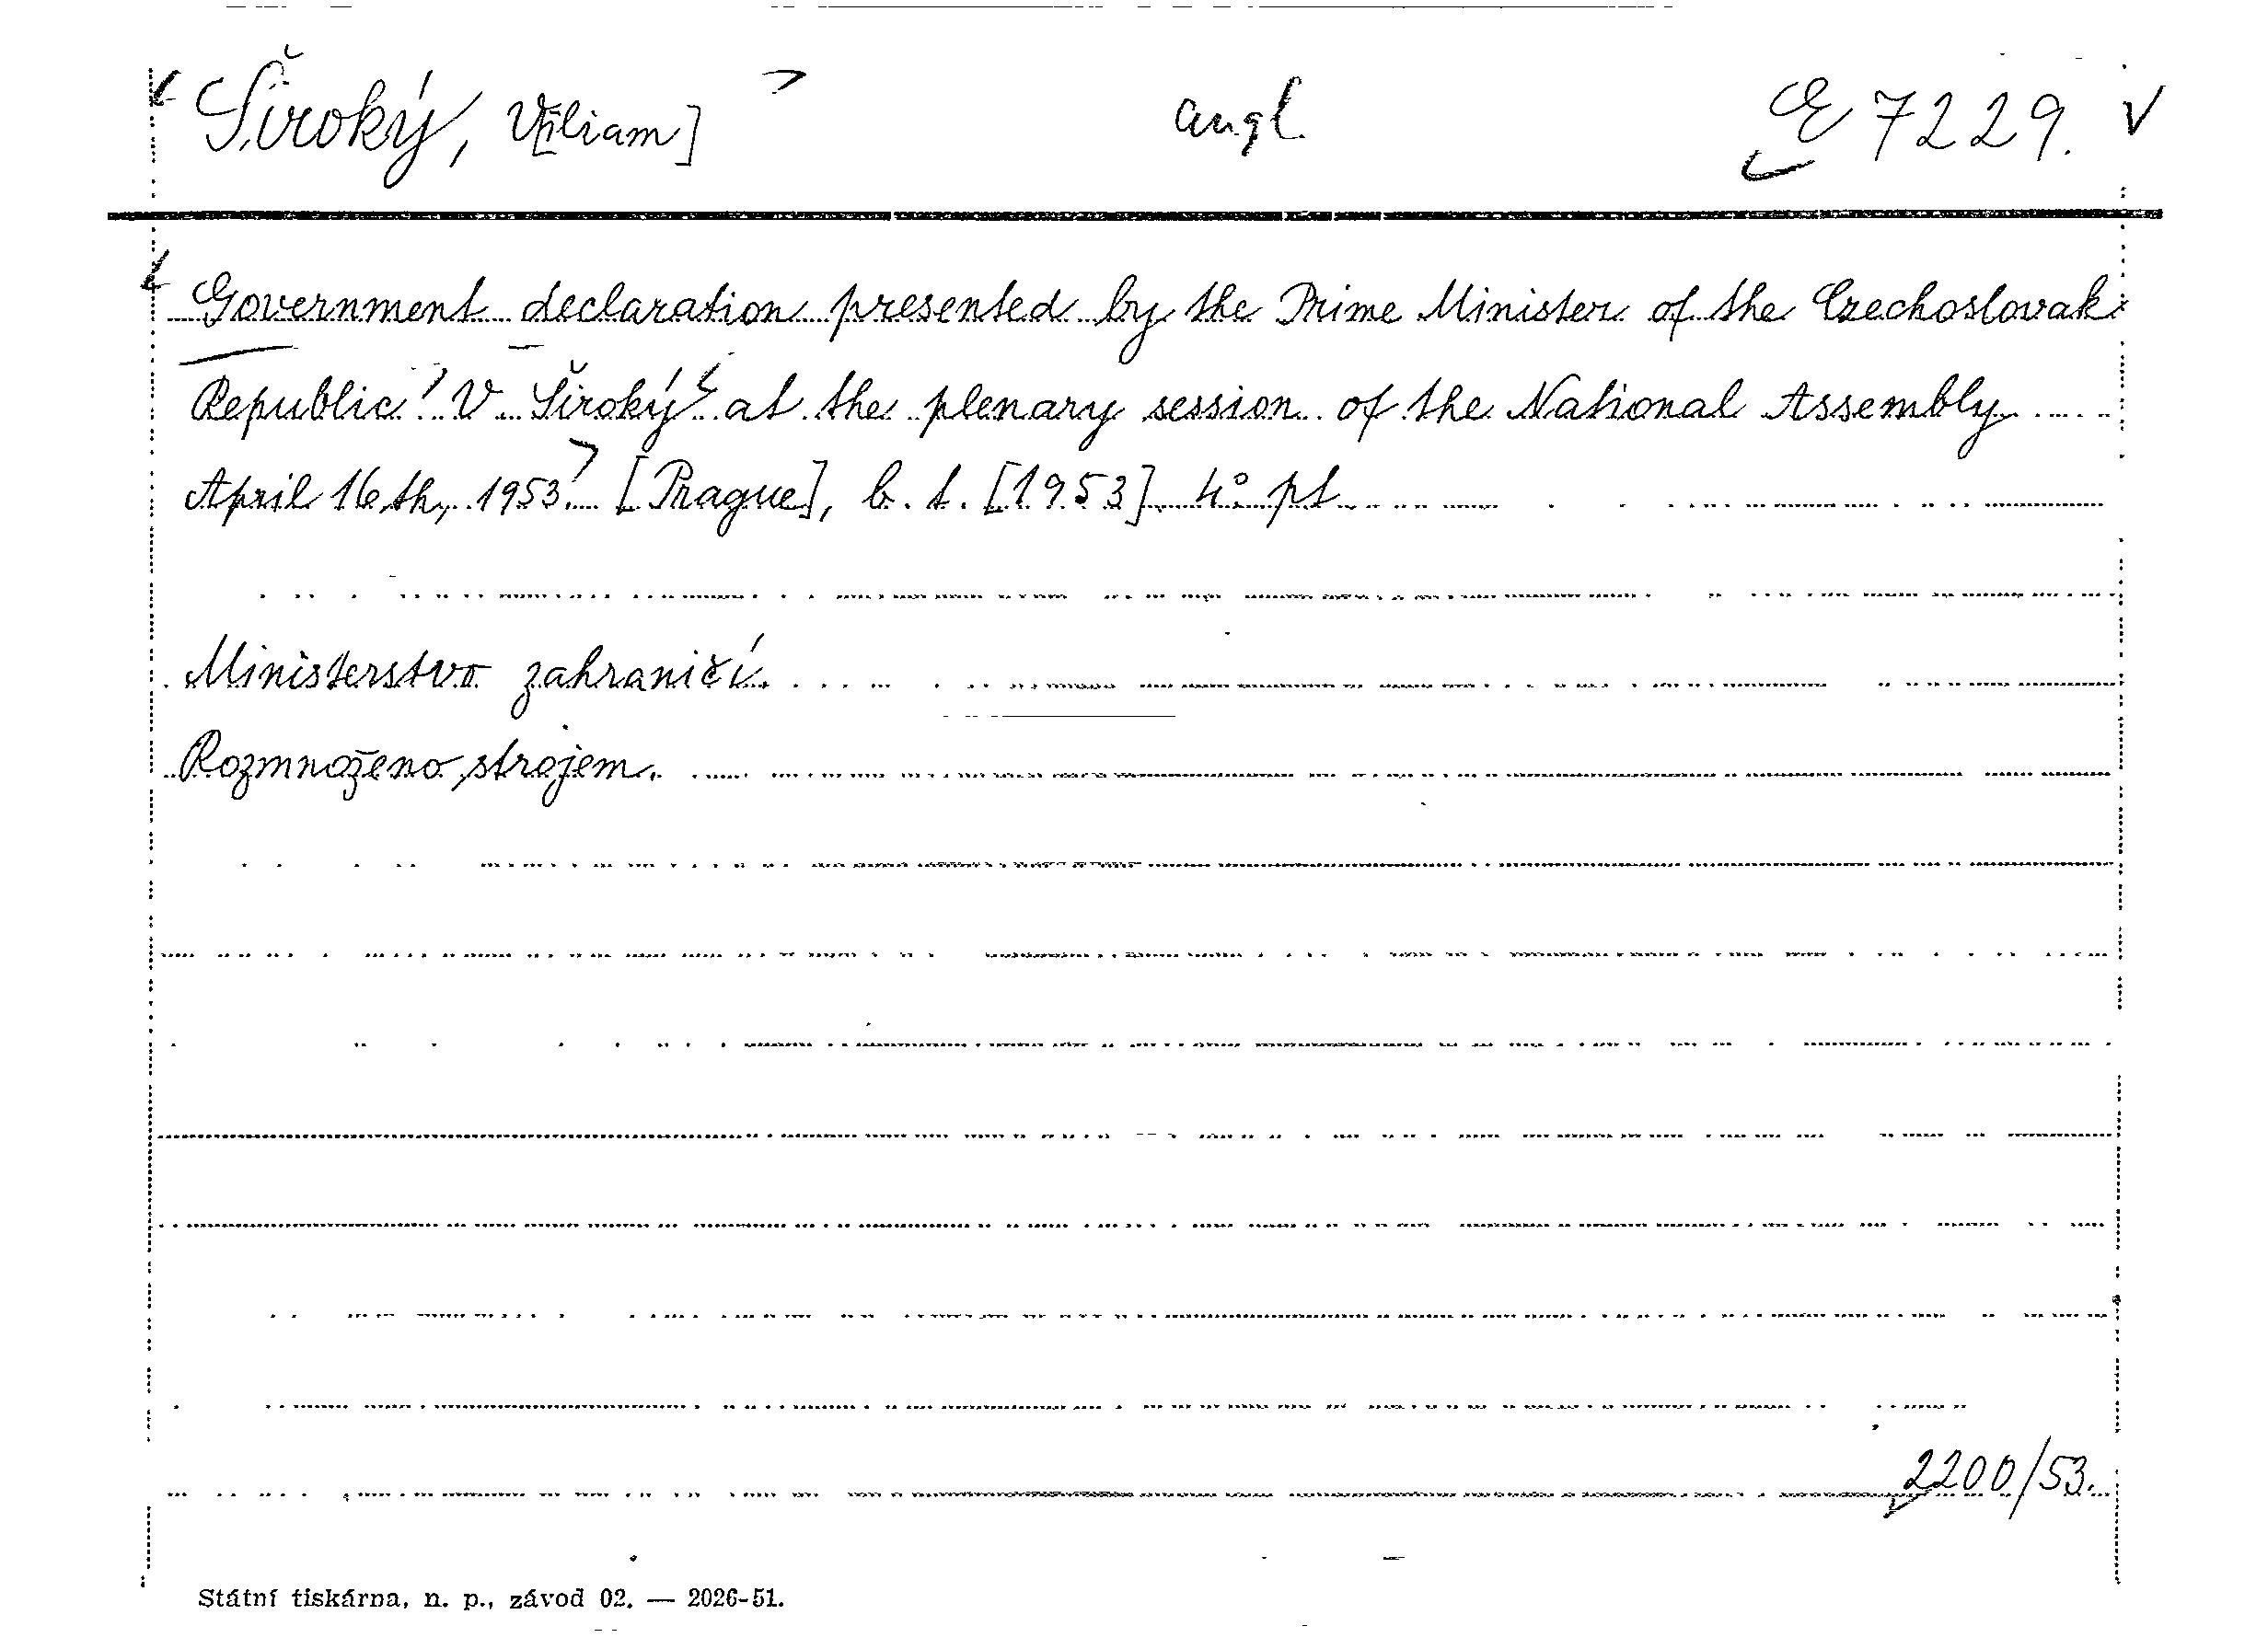 Široký, V[iliam] angl. E 7229.
Government declaration presented by the Prime Minister of the Czechoslovak
Republic V. Široký at the plenary session of the National Assembly
April 16th, 1953. [Prague], b. t. [1953]. 4° pt.
Ministerstvo zahraničí.
Rozmnoženo strojem.
2200/53.
Státní tiskárna, n. p., závod 02. — 2026-51.